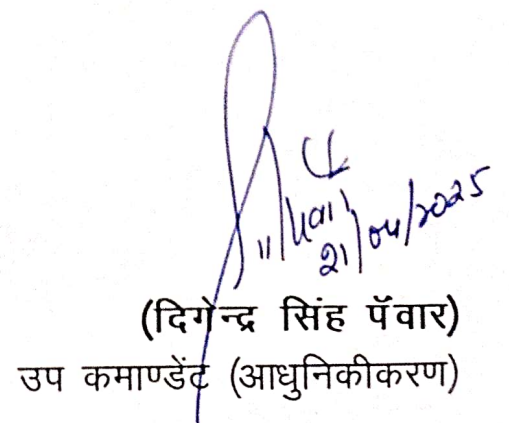 21/04/2025
(दिगेन्द्र सिंह पॅवार)
उप कमाण्डेंट (आधुनिकीकरण)